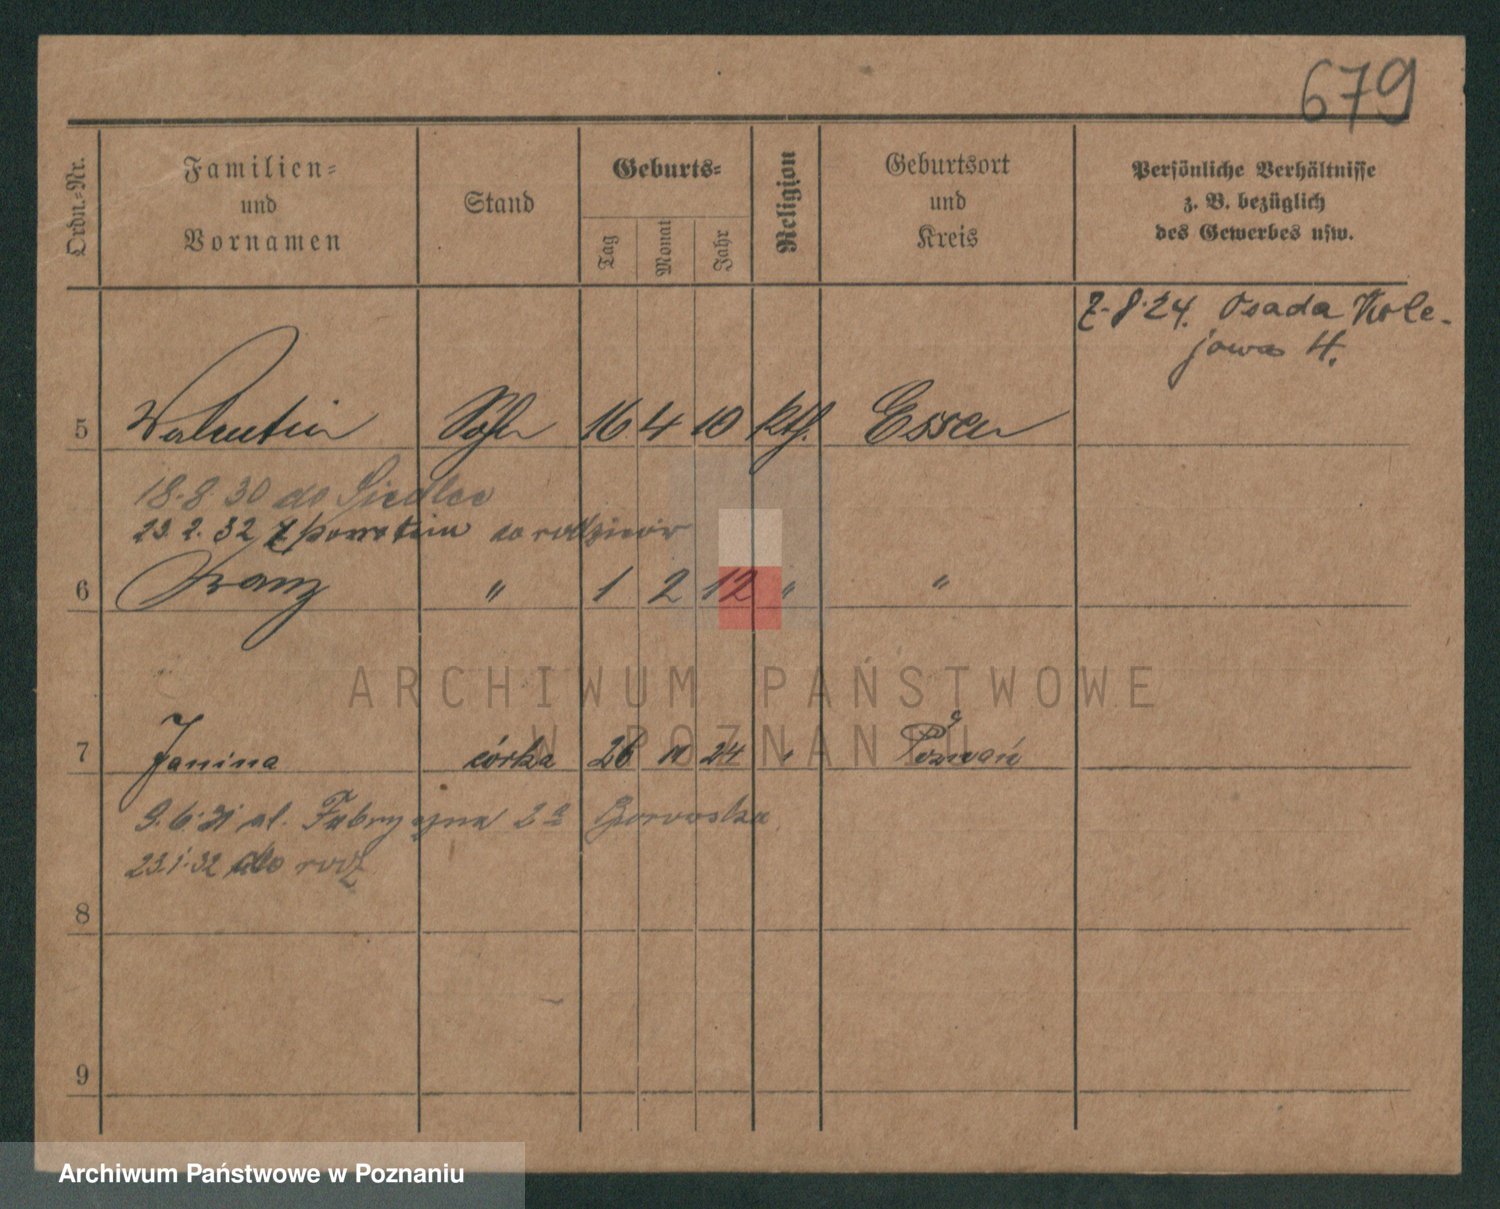 679
Ordn.-Nr.
Familien-
und
Vornamen
Stand
Geburts-
Tag
Monat
Jahr
Religion
Geburtsort
und
Kreis
Persönliche Verhältnisse
z. B. bezüglich
des Gewerbes usw.
7.8.24. Osada Kole-
jowa 4.
5 Valentin Sohn 16 4 10 kth. Essen
18.8.30 do Siedlec
23.2.32 z powrotem do rodziców
6 Franz " 1 2 12 " "
7 Janina córka 26 24 " Poznań
9.6.31 ul. Fabryczna
23.1.32 do rodz
8
9
ARCHIWUM PAŃSTWOWE
W POZNANIU
Archiwum Państwowe w Poznaniu